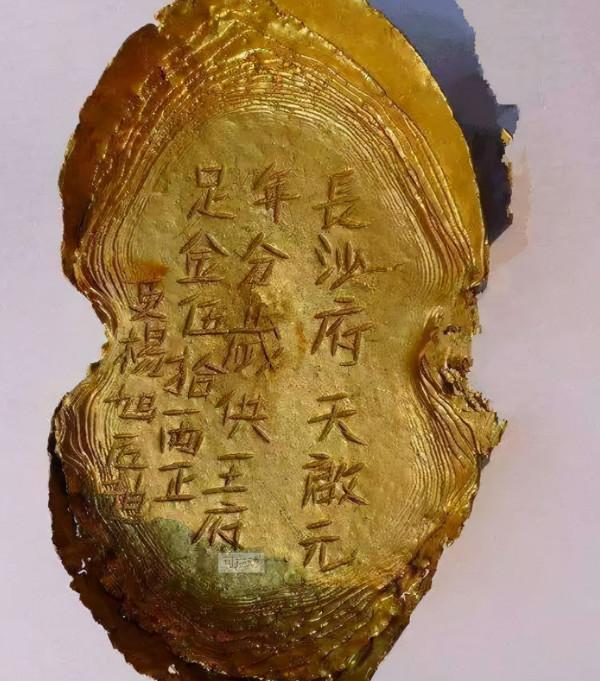 長沙府天啟元
年分歲供王府
足金伍拾两正
吏楊旭匠